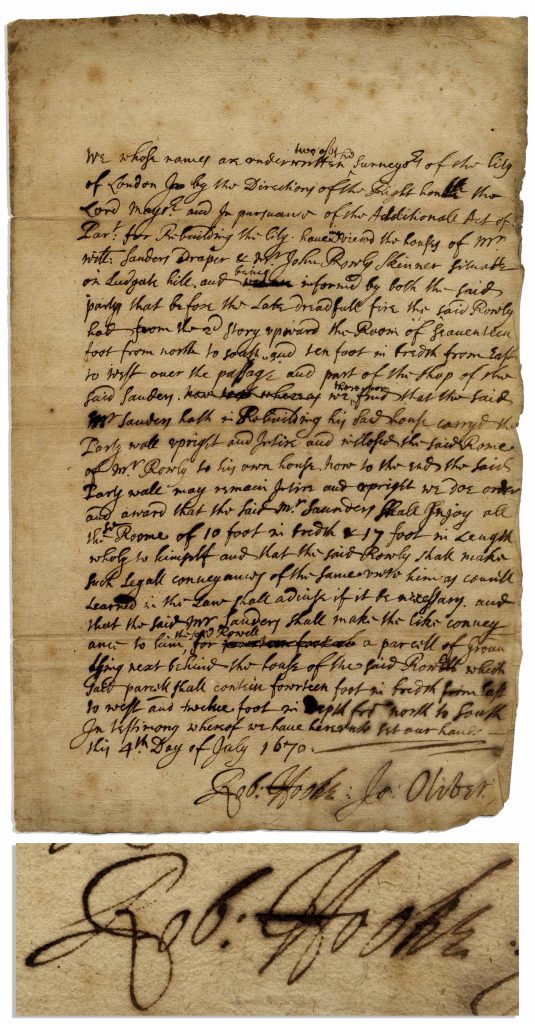 We whose names are underwritten two of the Surveyors of the City
of London Do by the Directions of the Right honble the
Lord Mayor and In pursuance of the Additionall Act of
Parlt. for Rebuilding the City. have viewd the houses of Mr
Will: Sanders Draper & Mr John Rowly Skinner situate
on Ludgate hill, and being informed by both the said
partys that before the Late Dreadfull fire the said Rowly
had from the 2d story upward the Room of Seaventeen
foot from north to south and ten foot in bredth from East
to west over the passage and part of the shop of the
said Sanders. whereas we therefore find that the said
Mr Sanders hath in Rebuilding his said house carryd the
Party wall upright and Intire and inclosed the said Rome
of Mr Rowly to his own house. now to the end the said
Party wall may remain Intire and upright we doe order
and award that the said Mr Saunders shall Injoy all
the Roome of 10 foot in bredth & 17 foot in Length
wholy to himself and that the said Rowly shall make
such Legall conveyances of the same unto him as councill
Learned in the Law shall advise if it be necessary. and
that the said Mr Sanders shall make the like convey
ance to him the said Rowell for a parcell of Groun
lying next behind the house of the said Rowell which
said parcell shall contein fowrteen foot in bredth from East
to west and twelve foot in Depth from north to South
In testimony whereof we have hereunto set our hands
this 4th Day of July 1670.
Rob: Hooke: Jo: Oliver.
Rob: Hooke: